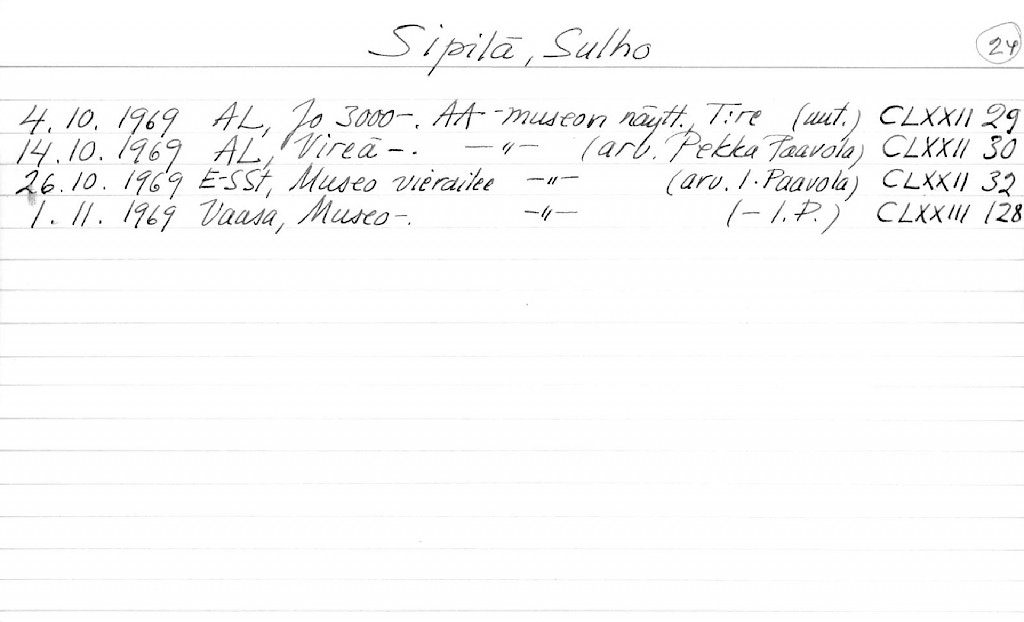 Sipilä, Sulho
24
4.10.1969 AL, Jo 3000-. AA-museon näytt., T:re (uut.) CLXXII 29
14.10.1969 AL, Vireä-. -"- (arv. Pekka Paavola) CLXXII 30
26.10.1969 E-SSt, Museo vierailee -"- (arv. I. Paavola) CLXXII 32
1.11.1969 Vaasa, Museo-. -"- (- I.P.) CLXXIII 128